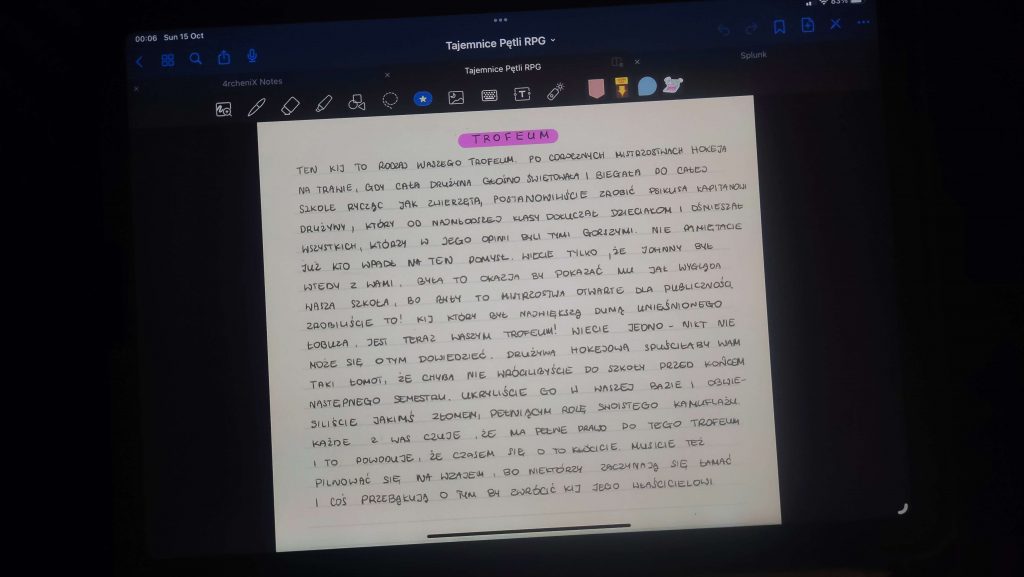 00:06 Sun 15 Oct
83%
Tajemnice Pętli RPG
4rcheniX Notes
Tajemnice Pętli RPG
Splunk
TROFEUM
TEN KIJ TO RODZAJ WASZEGO TROFEUM. PO COROCZNYCH MISTRZOSTWACH HOKEJA
NA TRAWIE, GDY CAŁA DRUŻYNA GŁOŚNO ŚWIĘTOWAŁA I BIEGAŁA PO CAŁEJ
SZKOLE RYCZĄC JAK ZWIERZĘTA, POSTANOWILIŚCIE ZROBIĆ PSIKUSA KAPITANOWI
DRUŻYNY, KTÓRY OD NAJMŁODSZEJ KLASY DOKUCZAŁ DZIECIAKOM I OŚMIESZAŁ
WSZYSTKICH, KTÓRZY W JEGO OPINII BYLI TYMI GORSZYMI. NIE PAMIĘTACIE
JUŻ KTO WPADŁ NA TEN POMYSŁ. WIECIE TYLKO, ŻE JOHNNY BYŁ
WTEDY Z WAMI. BYŁA TO OKAZJA BY POKAZAĆ MU JAK WYGLĄDA
WASZA SZKOŁA, BO BYŁY TO MISTRZOSTWA OTWARTE DLA PUBLICZNOŚCI.
ZROBILIŚCIE TO! KIJ KTÓRY BYŁ NAJWIĘKSZĄ DUMĄ UNIEŚNIONEGO
ŁOBUZA, JEST TERAZ WASZYM TROFEUM! WIECIE JEDNO - NIKT NIE
MOŻE SIĘ O TYM DOWIEDZIEĆ. DRUŻYNA HOKEJOWA SPUŚCIŁABY WAM
TAKI ŁOMOT, ŻE CHYBA NIE WRÓCILIBYŚCIE DO SZKOŁY PRZED KOŃCEM
NASTĘPNEGO SEMESTRU. UKRYLIŚCIE GO W WASZEJ BAZIE I OBWIE-
SILIŚCIE JAKIMŚ ZŁOMEM, PEŁNIĄCYM ROLĘ SWOISTEGO KAMUFLAŻU.
KAŻDE Z WAS CZUJE, ŻE MA PEŁNE PRAWO DO TEGO TROFEUM
I TO POWODUJE, ŻE CZASEM SIĘ O TO KŁÓCICIE. MUSICIE TEŻ
PILNOWAĆ SIĘ NA WZAJEM, BO NIEKTÓRZY ZACZYNAJĄ SIĘ ŁAMAĆ
I COŚ PRZEBĄKUJĄ O TYM BY ZWRÓCIĆ KIJ JEGO WŁAŚCICIELOWI